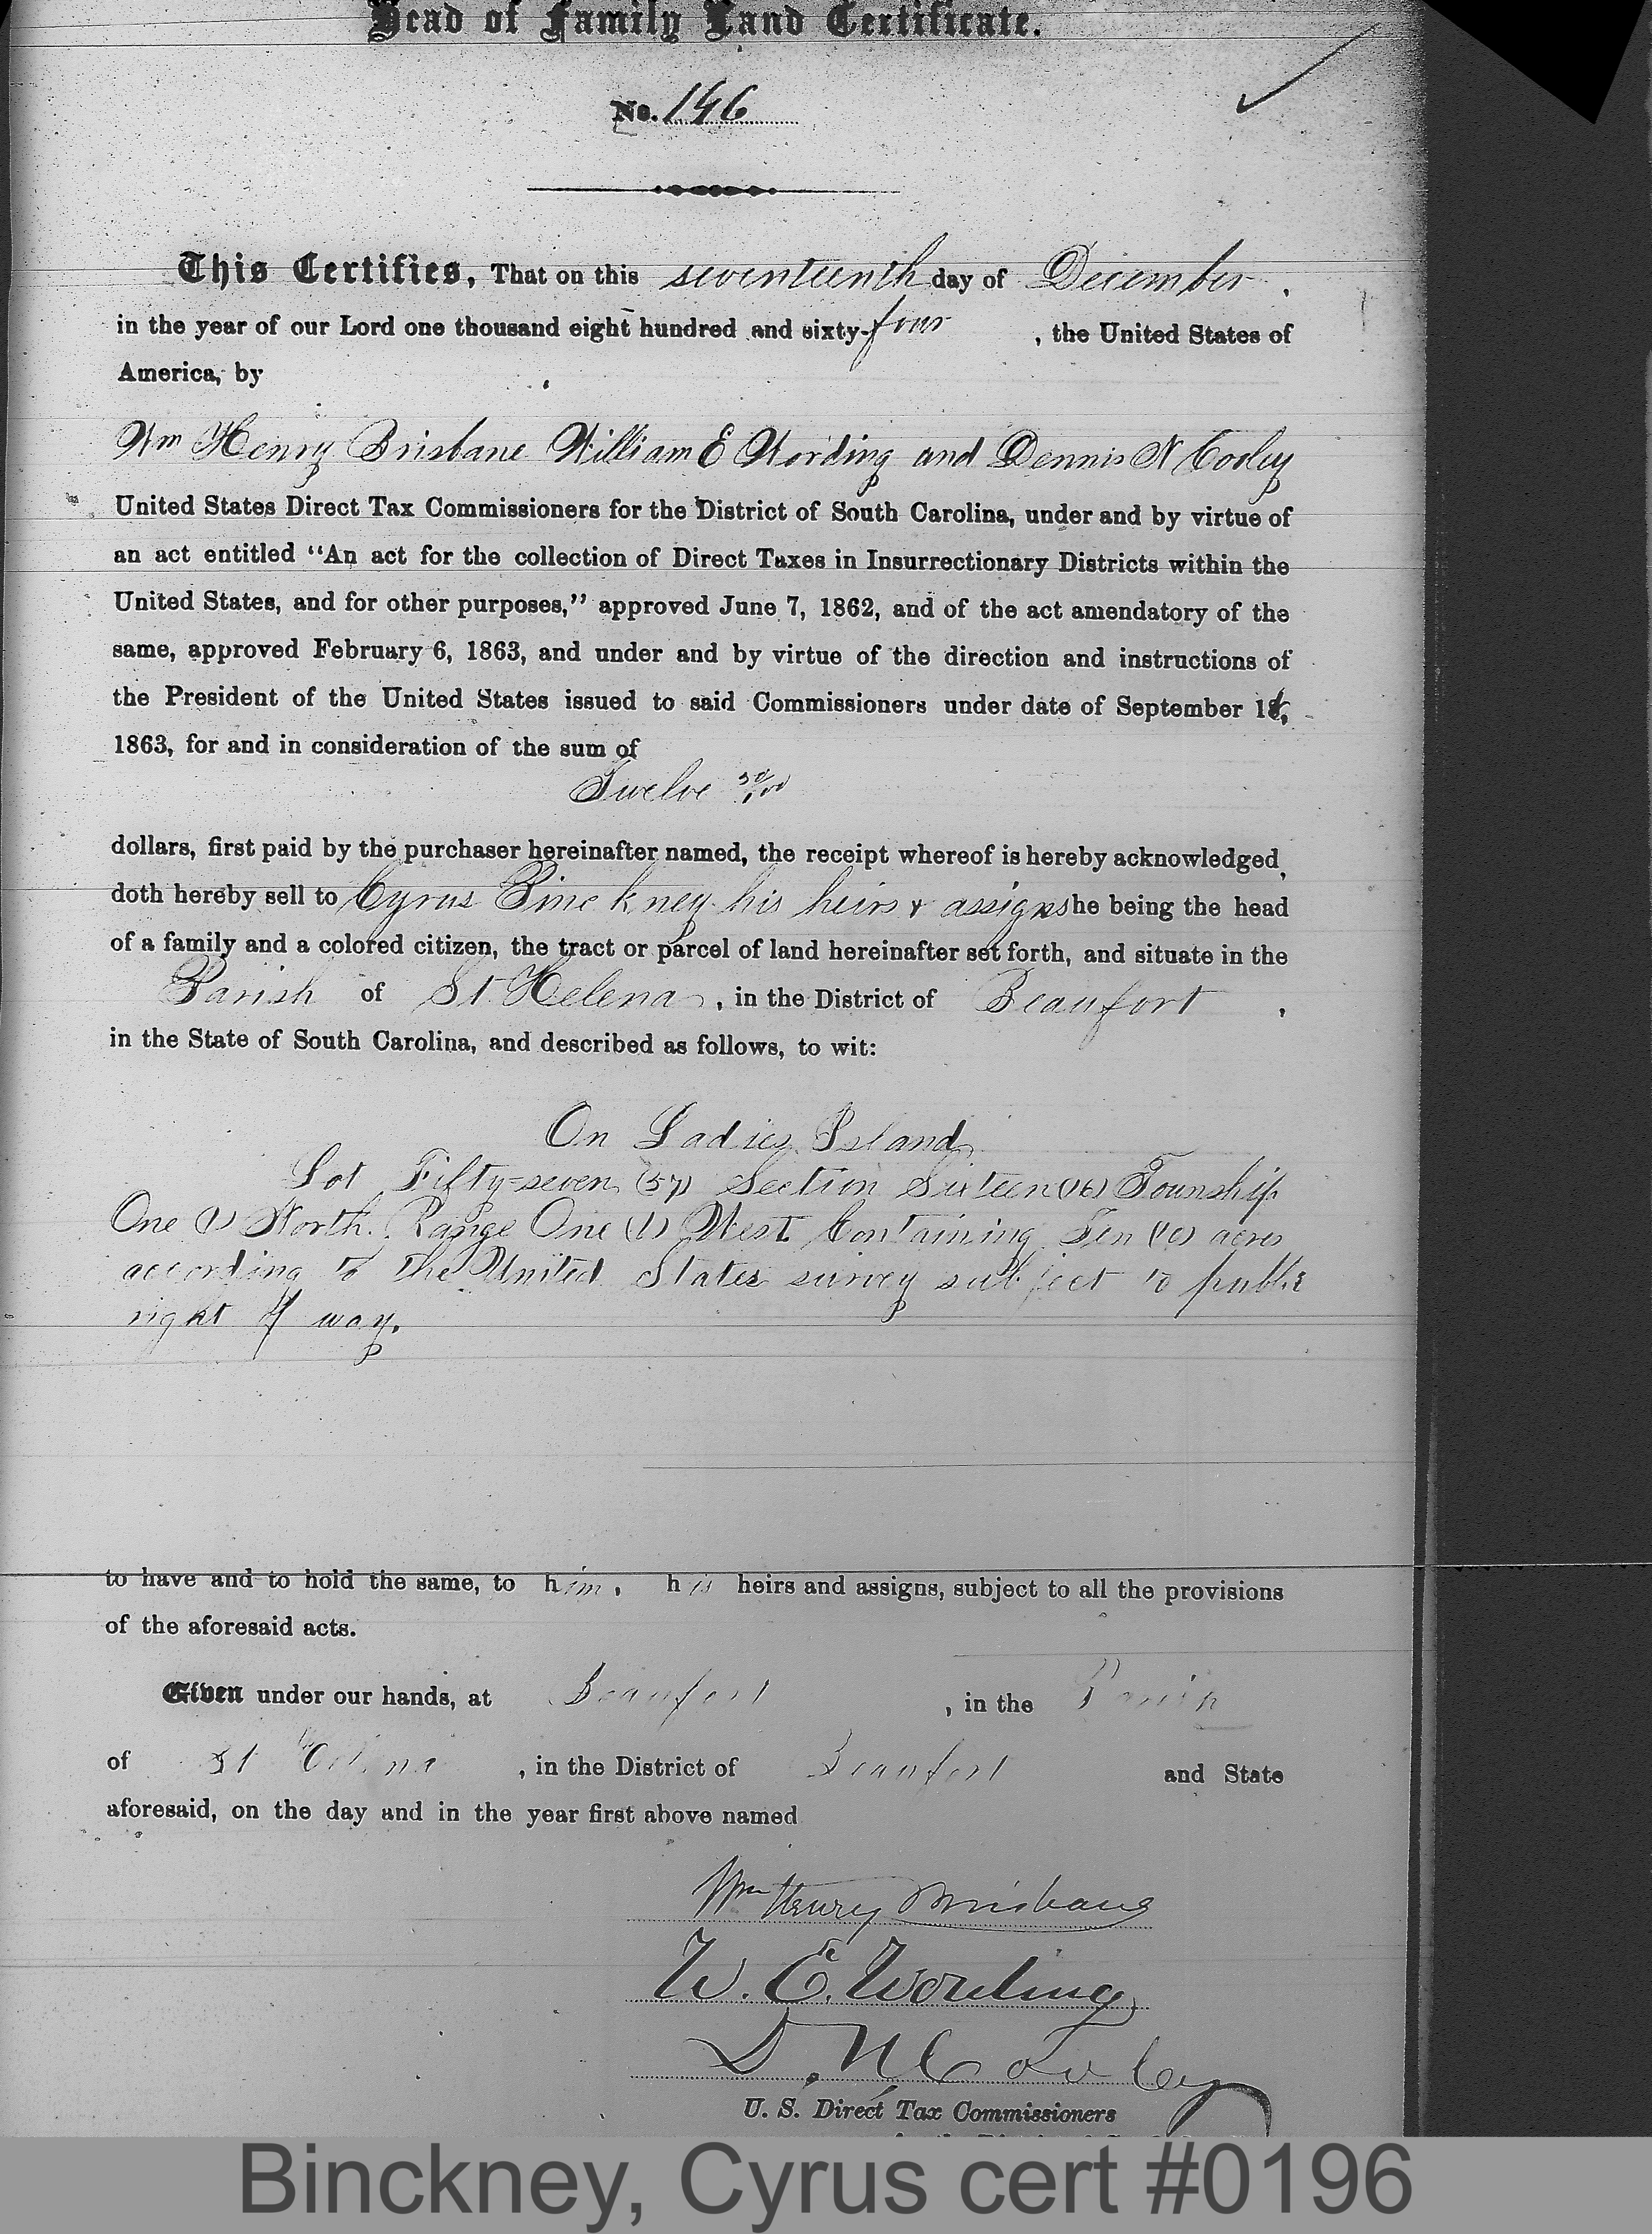 Head of Family Land Certificate.
No. 196
This Certifies, That on this seventeenth day of December,
in the year of our Lord one thousand eight hundred and sixty-four, the United States of
America, by
Wm Henry Brisbane William E Wording and Dennis N Cooley
United States Direct Tax Commissioners for the District of South Carolina, under and by virtue of
an act entitled "An act for the collection of Direct Taxes in Insurrectionary Districts within the
United States, and for other purposes," approved June 7, 1862, and of the act amendatory of the
same, approved February 6, 1863, and under and by virtue of the direction and instructions of
the President of the United States issued to said Commissioners under date of September
1863, for and in consideration of the sum of
Twelve 50/100
dollars, first paid by the purchaser hereinafter named, the receipt whereof is hereby acknowledged,
doth hereby sell to Cyrus Binckney his heirs & assigns he being the head
of a family and a colored citizen, the tract or parcel of land hereinafter set forth, and situate in the
Parish of St Helena, in the District of Beaufort,
in the State of South Carolina, and described as follows, to wit:
On Ladies Island
Lot Fifty-seven (57) Section Sixteen (16) Township
One (1) North. Range One (1) West Containing Ten (10) acres
according to the United States survey subject to public
right of way.
to have and to hold the same, to him, his heirs and assigns, subject to all the provisions
of the aforesaid acts.
Given under our hands, at Beaufort, in the Parish
of St Helena, in the District of Beaufort and State
aforesaid, on the day and in the year first above named
Wm Henry Brisbane
W. E. Wording
D. N. Cooley
U. S. Direct Tax Commissioners
Binckney, Cyrus cert #0196